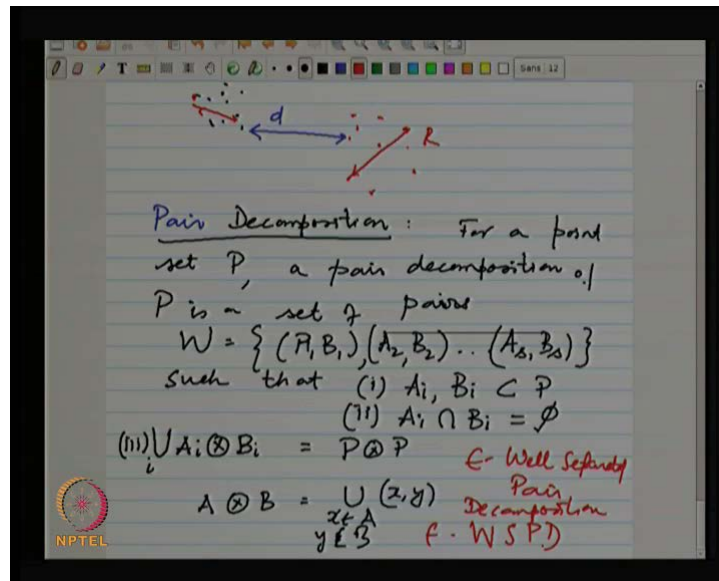 Sans 12
d
R
Pair Decomposition : For a point
set P, a pair decomposition of
P is a set of pairs
W = { (A, B₁), (A₂, B₂) .. (As, Bs) }
such that (i) Ai, Bi ⊂ P
(ii) Ai ∩ Bi = ∅
(iii) ∪ᵢ Ai ⊗ Bi = P ⊗ P
A ⊗ B = ∪ (x, y)
x ∈ A
y ∈ B
ϵ- Well Separated
Pair
Decomposition
ϵ - WSPD
NPTEL